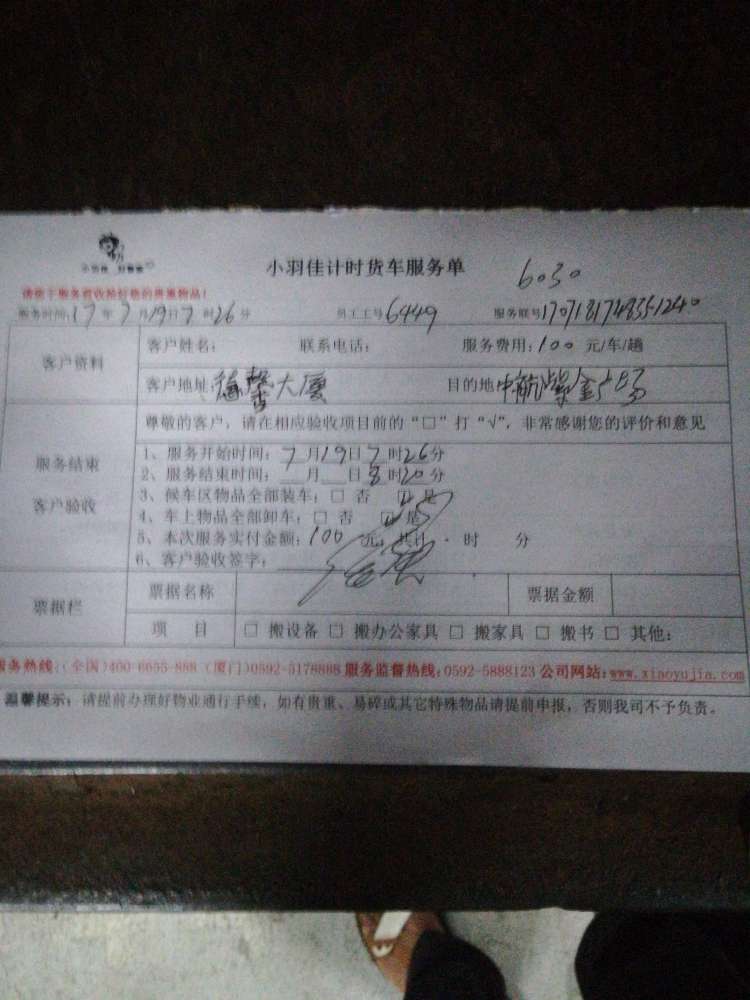 小羽佳 好管家
小羽佳计时货车服务单
6030
请您于服务前收拾好您的贵重物品！
服务时间：17年7月19日7时26分 员工工号6449 服务联号
客户资料
客户姓名： 联系电话： 服务费用：100元/车/趟
客户地址：德馨大厦 目的地 中航紫金广场
尊敬的客户，请在相应验收项目前的“□”打“√”，非常感谢您的评价和意见
服务结束
客户验收
1、服务开始时间：7月19日7时26分
2、服务结束时间：__月__日8时20分
3、候车区物品全部装车：□ 否 ☑ 是
4、车上物品全部卸车：□ 否 ☑ 是
5、本次服务实付金额：100元；共计 时 分
6、客户验收签字：
票据栏
票据名称 票据金额
项 目 □ 搬设备 □ 搬办公家具 □ 搬家具 □ 搬书 □ 其他：
服务热线：(全国)400-6655-888 (厦门)0592-5178888 服务监督热线：0592-5888123 公司网站：www.xiaoyujia.com
温馨提示：请提前办理好物业通行手续，如有贵重、易碎或其它特殊物品请提前申报，否则我司不予负责。